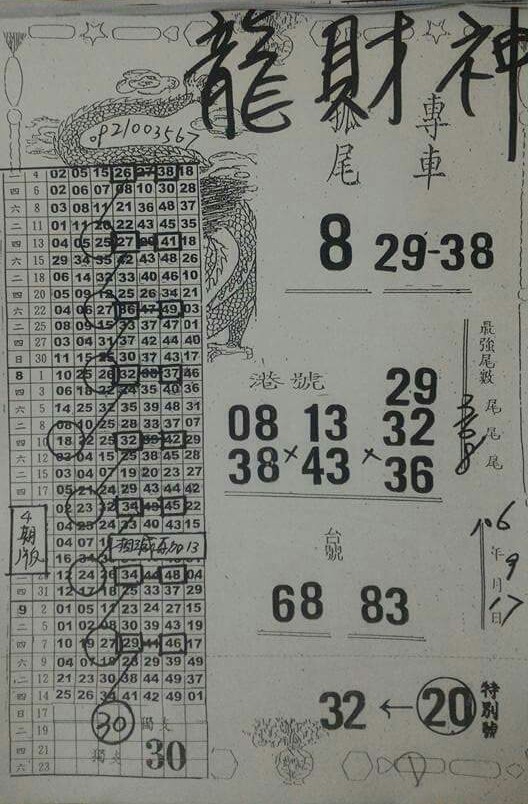 龍財神
0921003567
孤尾
專車
8 29-38
二 4 02 05 15 26 27 38 18
四 6 02 06 07 08 10 30 28
六 8 03 08 11 21 36 48 37
二 11 01 11 20 22 43 45 35
四 13 04 05 25 27 29 41 18
六 15 29 34 35 42 43 48 26
二 18 06 14 32 33 40 46 10
四 20 05 09 12 25 26 34 21
六 22 04 06 27 36 47 49 03
二 25 08 09 15 33 37 47 01
四 27 03 04 31 37 42 44 40
日 30 11 15 25 30 31 43 17
8 1 10 25 26 32 33 37 46
四 3 06 18 22 24 35 40 36
六 5 14 25 32 35 39 48 31
二 8 08 10 25 28 33 37 07
四 10 18 22 25 32 39 42 29
六 12 03 04 15 25 38 45 28
二 15 03 04 07 19 20 23 27
四 17 05 21 24 29 43 44 42
23 32 34 45 22
04 25 24 33 40 43 15
04 07
16 34
12 24 26 34 44 48 04
四 31 12 17 18 25 33 37 29
9 2 01 05 11 23 24 27 15
二 5 01 02 08 30 39 43 19
四 7 10 19 27 29 41 46 17
六 9 04 07 19 28 29 39 49
二 12 21 23 30 38 44 49 37
四 14 25 26 34 41 42 49 01
日 17
二 19
四 21
六 23
4期版
13
30 獨支
獨支 30
港號
29
08 13 32
38×43×36
最強尾數
尾
尾
尾
台號
68 83
106年9月17日
32←20 特別號